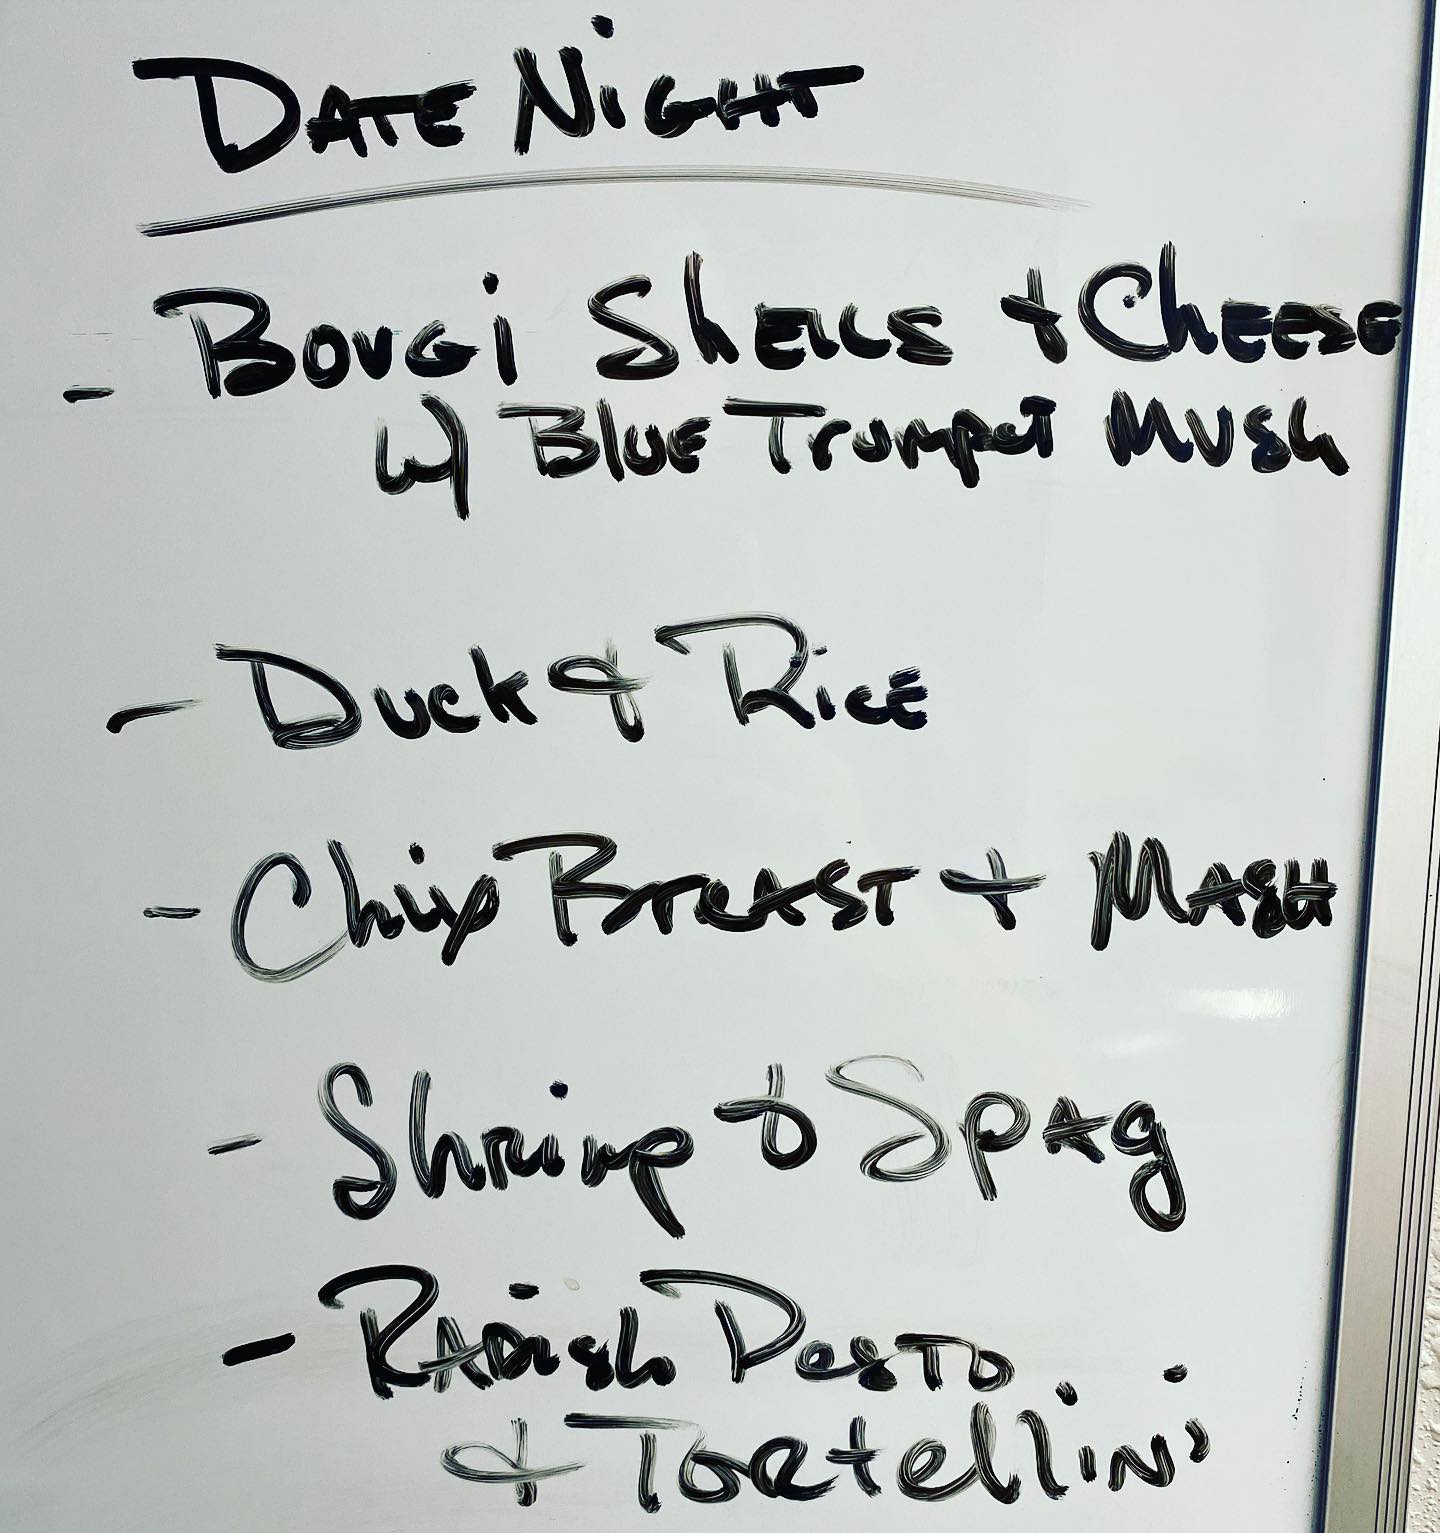 DATE NIGHT
- BOUGI SHELLS + CHEESE
W/ BLUE TRUMPET MUSH
- DUCK & RICE
- CHIX BREAST + MASH
- SHRIMP & SPAG
- RADISH PESTO
& TORTELLINI